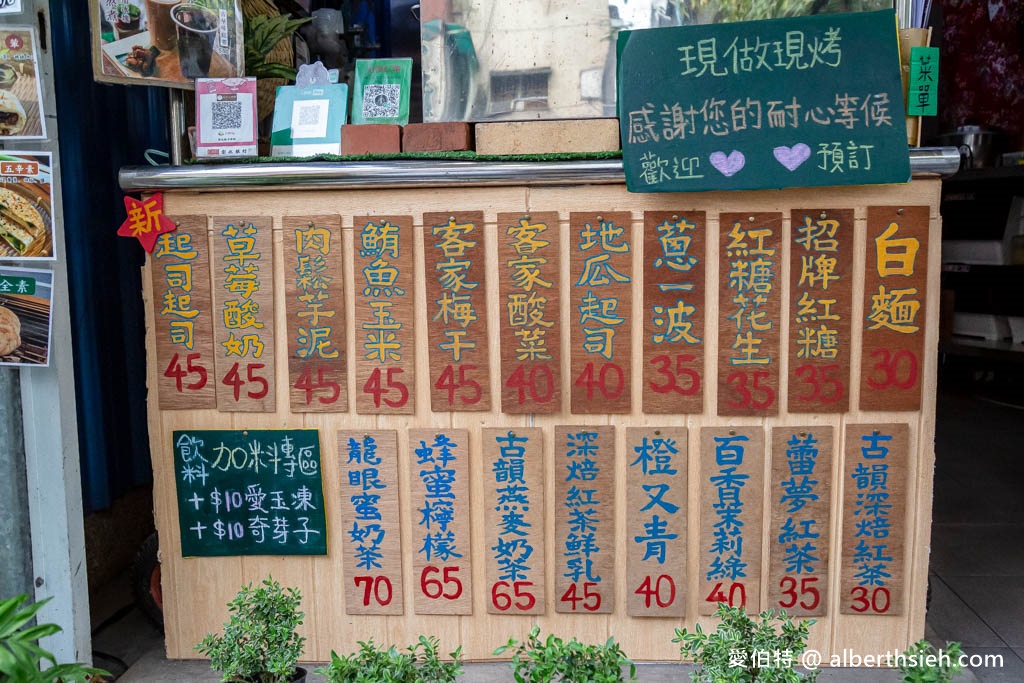 現做現烤
感謝您的耐心等候
歡迎 預訂
菜單
五辛素
全素
新
起司起司 45
草莓酸奶 45
肉鬆芋泥 45
鮪魚玉米 45
客家梅干 45
客家酸菜 40
地瓜起司 40
蔥一波 35
紅糖花生 35
招牌紅糖 35
白麵 30
飲料 加料專區
+$10愛玉凍
+$10奇芽子
龍眼蜜奶茶 70
蜂蜜檸檬 65
古韻燕麥奶茶 65
深焙紅茶鮮乳 45
橙又青 40
百香茉莉綠 40
蕾夢紅茶 35
古韻深焙紅茶 30
愛伯特 @ alberthsieh.com